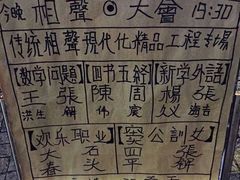 今晚 相聲大會 19:30
传統相聲現代化精品工程专場
数学问题 四书五经 新学外語
王洪生 張鈃 陳偉 周宸 楊 張
欢乐职业 窦公訓女
大春 石头 窦平 張鈃